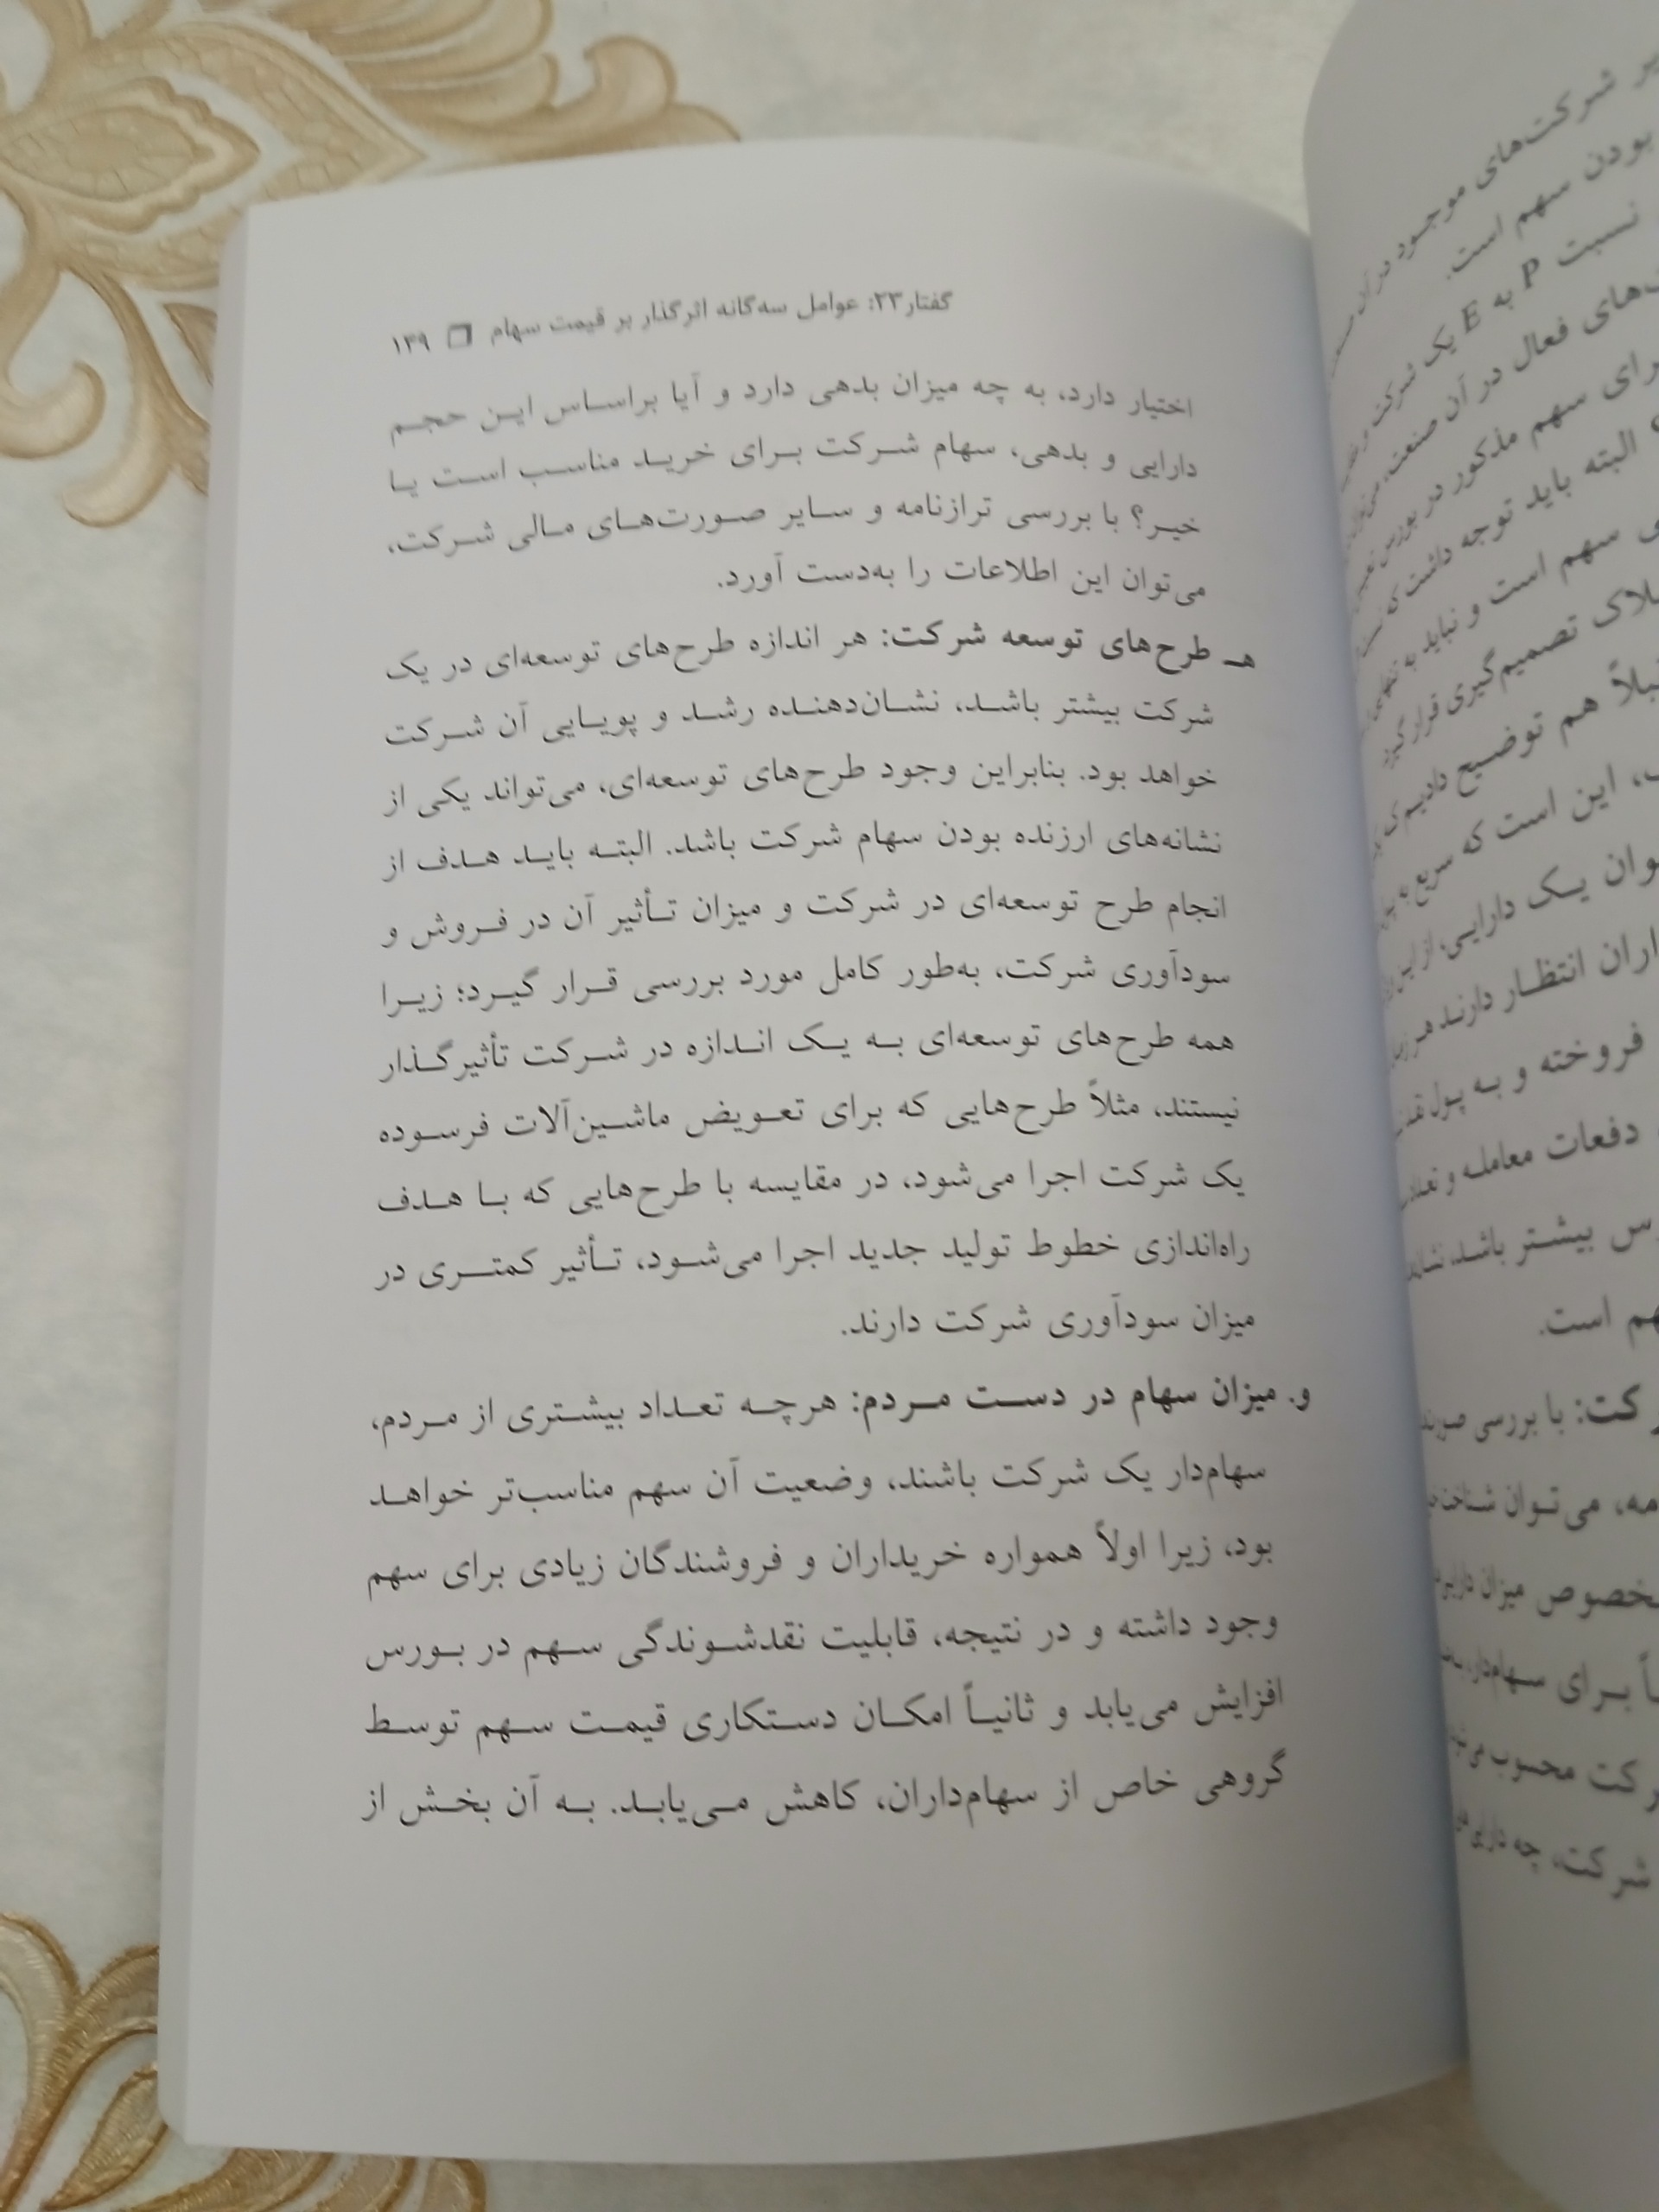 گفتار۲۳: عوامل سه‌گانه اثرگذار بر قیمت سهام ❒ ۱۳۹
اختیار دارد، به چه میزان بدهی دارد و آیا براساس این حجم
دارایی و بدهی، سهام شرکت برای خرید مناسب است یا
خیر؟ با بررسی ترازنامه و سایر صورت‌های مالی شرکت،
می‌توان این اطلاعات را به‌دست آورد.
هـ طرح‌های توسعه شرکت: هر اندازه طرح‌های توسعه‌ای در یک
شرکت بیشتر باشد، نشان‌دهنده رشد و پویایی آن شرکت
خواهد بود. بنابراین وجود طرح‌های توسعه‌ای، می‌تواند یکی از
نشانه‌های ارزنده بودن سهام شرکت باشد. البته باید هدف از
انجام طرح توسعه‌ای در شرکت و میزان تأثیر آن در فروش و
سودآوری شرکت، به‌طور کامل مورد بررسی قرار گیرد؛ زیرا
همه طرح‌های توسعه‌ای به یک اندازه در شرکت تأثیرگذار
نیستند، مثلاً طرح‌هایی که برای تعویض ماشین‌آلات فرسوده
یک شرکت اجرا می‌شود، در مقایسه با طرح‌هایی که با هدف
راه‌اندازی خطوط تولید جدید اجرا می‌شود، تأثیر کمتری در
میزان سودآوری شرکت دارند.
و. میزان سهام در دست مردم: هرچه تعداد بیشتری از مردم،
سهام‌دار یک شرکت باشند، وضعیت آن سهم مناسب‌تر خواهد
بود، زیرا اولاً همواره خریداران و فروشندگان زیادی برای سهم
وجود داشته و در نتیجه، قابلیت نقدشوندگی سهم در بورس
افزایش می‌یابد و ثانیاً امکان دستکاری قیمت سهم توسط
گروهی خاص از سهام‌داران، کاهش می‌یابد. به آن بخش از
شرکت‌های موجود در آن
بودن سهم است.
نسبت P به E یک شرکت
فعال در آن صنعت،
سهم مذکور در بورس
البته باید توجه داشت که
سهم است و نباید به
تصمیم‌گیری قرار گیرد
هم توضیح دادیم که
این است که سریع به
یک دارایی، از این
انتظار دارند هر
فروخته و به پول
دفعات معامله و
بیشتر باشد،
است.
با بررسی
می‌توان
میزان
برای سهام‌دار،
محسوب
شرکت، چه